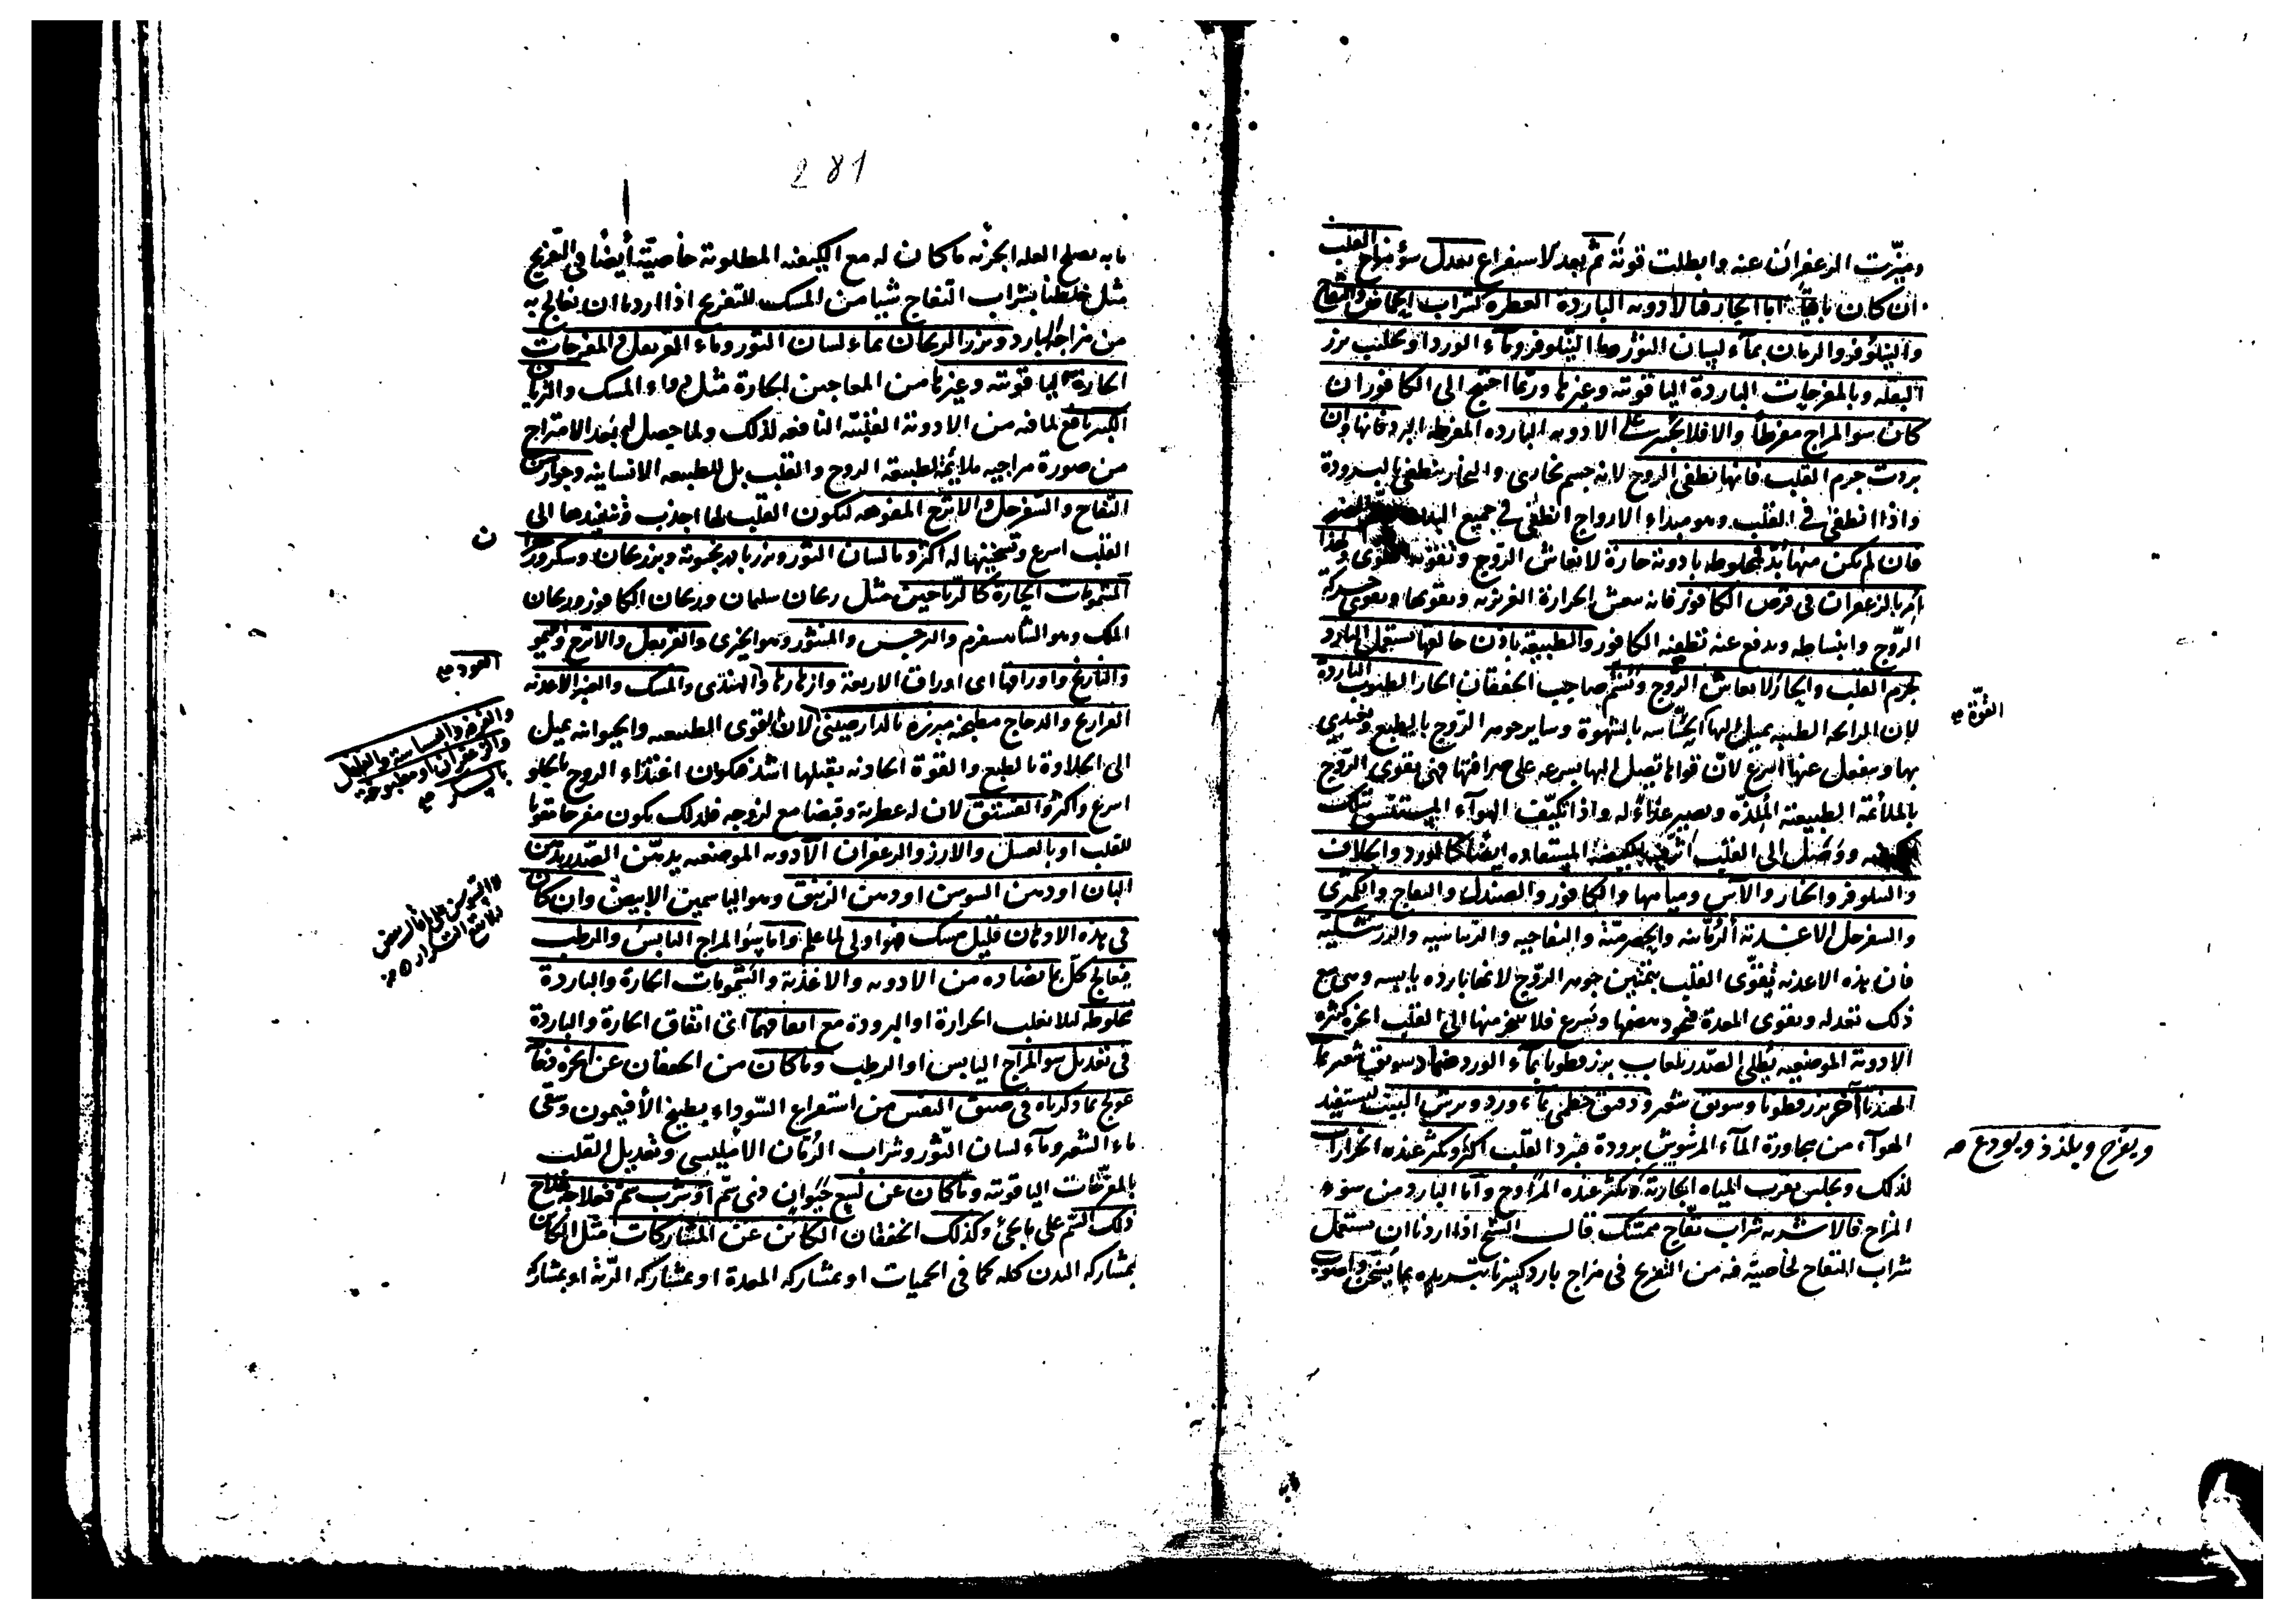 وميزت الزعفران عنه وابطلت قوته ثم بعد الاستفراغ يعدل سوء مزاج القلب
ان كان باقيا اما الحار فبالادوية الباردة العطرة كشراب الحماض والتفاح
والنيلوفر والرمان بماء لسان الثور وماء النيلوفر وماء الورد او بحليب بزر
البقلة وبالمفرحات الباردة الياقوتية وغيرها وربما احتيج الى الكافور ان
كان سوء المزاج مفرطا والا فلا يجسر على الادوية الباردة المفرطة البرد فانها وان
بردت جرم القلب فانها تطفئ الروح لانه جسم بخاري والبخار ينطفي بالبرودة
واذا انطفئ في القلب وهو مبداء الارواح انطفئ في جميع البدن
فان لم يكن منها بد فمخلوطة بادوية حارة لانعاش الروح وتقوية القوى ولهذا
امر بالزعفران في قرص الكافور فانه ينعش الحرارة الغريزية ويقويها ويقوي حركة
الروح وانبساطه ويدفع عنه تطفئة الكافور والطبيعة باذن خالقها تستعمل البارد
لجرم القلب والحار لانعاش الروح وشم صاحب الخفقان الحار الطيوب الباردة
لان الرائحة الطيبة يميل اليها الحساسة بالشهوة وساير جوهر الروح بالطبع ويغتذي
القوة صح
بها وينفعل عنها اسرع لان قواها تصل اليها بسرعة على صرافتها فهي تقوي الروح
بالملائمة الطبيعية الملذة ويصير غذاء له واذا تكيف الهواء المستنشق بتلك
ووصل الى القلب اثر الكيفية المستفادة ايضا كالورد والخلاف
والنيلوفر والخيار والآس ومياهها والكافور والصندل والتفاح والكمثرى
والسفرجل الاغذية الرمانية والحصرمية والتفاحية والريباسية والزرشكية
فان هذه الاغذية تقوي القلب بتمتين جوهر الروح لانها باردة يابسة وهي مع
ذلك تعدله وتقوي المعدة فيجود هضمها ويسرع فلا يتبخر منها الى القلب ابخرة كثيرة
الادوية الموضعية يطلى الصدر بلعاب بزر قطونا بماء الورد ضماد سويق شعير بماء
الهندبا آخر بزر قطونا وسويق شعير ودقيق خطمي بماء ورد ويرش البيت ليستفيد
الهواء من مجاورة الماء المرشوش برودة فيبرد القلب اكثر ويكثر عنده الخرارات
ويفرح ويلذذ ويودع صح
لذلك ويجلس بقرب المياه الجارية ويكثر عنده المراوح واما البارد من سوء
المزاج فالاشربة شراب تفاح ممسك قال الشيخ اذا اردنا ان نستعمل
شراب التفاح لخاصية فيه من التفريح في مزاج بارد كسرنا تبريده بما يسخن واصوب
281
ما به يصلح العلة الجزئية ما كان له مع الكيفية المطلوبة خاصية ايضا في التفريح
مثل خلطنا بشراب التفاح شيا من المسك للتفريح اذا اردنا ان نعالج به
من مزاجه البارد وبزر الريحان بماء لسان الثور وماء القرنفل والمفرحات
الحارة الياقوتية وغيرها من المعاجين الحارة مثل دواء المسك والترياق
الكبير نافع لما فيه من الادوية القلبية النافعة لذلك ولما حصل له بعد الامتزاج
من صورة مزاجية ملائمة لطبيعة الروح والقلب بل للطبيعة الانسانية وجوارش
التفاح والسفرجل والاترج المفوهة ليكون القلب لها اجذب وتنفيذها الى
القلب اسرع وتسخينها له اكثر وماء لسان الثور وبزر بادرنجبوية وبزر ريحان وسكر وورد
ن
المشمومات الحارة كالرياحين مثل ريحان سليمان وريحان الكافور وريحان
الملك وهو الشاهسفرم والنرجس والمنثور وهو الخيري والقرنفل والاترج والليمو
والنارنج واوراقها اى اوراق الاربعة وازهارها والهندي والمسك والعنبر الاغذية
العود صح
الفراريج والدجاج مطجنة مبزرة بالدارصيني لان القوى الطبيعية والحيوانية يميل
الى الحلاوة بالطبع والقوة الحاوية يقبلها اشد فيكون اغتذاء الروح بالحلو
والزعفران او مطبوخة بالسكر صح
اسرع واكثر والفستق لان له عطرية وقبضا مع لزوجة فلذلك يكون مفرحا مقويا
للقلب او بالعسل والارز والزعفران الادوية الموضعية يدهن الصدر بدهن
البان او دهن السوسن او دهن الزنبق وهو الياسمين الابيض وان كان
في هذه الادهان قليل مسك فهو اولى لما علم واما سوء المزاج اليابس والرطب
فيعالج كل بما يضاده من الادوية والاغذية والمشمومات الحارة والباردة
مخلوطة لئلا يغلب الحرارة او البرودة مع اتفاقهما اى اتفاق الحارة والباردة
في تعديل سوء المزاج اليابس او الرطب وما كان من الخفقان عن ابخرة دخانية
عولج بما ذكرناه في ضيق النفس من استفراغ السوداء بطبيخ الافتيمون وسقى
ماء الشعير وماء لسان الثور وشراب الرمان الامليسي وتعديل القلب
بالمفرحات الياقوتية وما كان عن لسع حيوان ذي سم او شرب سم فعلاجه علاج
ذلك السم على ما يجئ وكذلك الخفقان الكاين عن المشاركات مثل الكاين
بمشاركة البدن كله كما في الحميات او بمشاركة المعدة او بمشاركة الرئة او بمشاركة